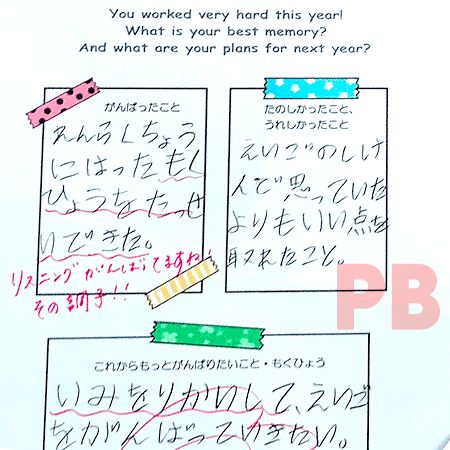 You worked very hard this year!
What is your best memory?
And what are your plans for next year?
がんばったこと
れんらくちょう
にはったもく
ひょうをたっせ
いできた。
リスニングがんばってますね!
その調子!!
たのしかったこと、
うれしかったこと
えいごのしけ
んで思っていた
よりもいい点を
取れたこと。
PB
これからもっとがんばりたいこと・もくひょう
いみをりかいして、えいご
をがんばっていきたい。